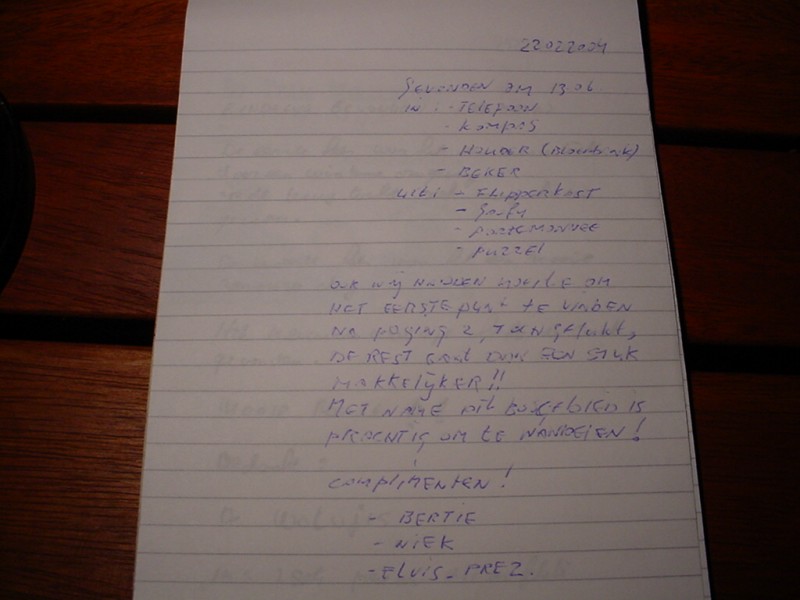 22022004
GEVONDEN OM 13.06
IN : - TELEFOON
- KOMPAS
- HOUDER
- BEKER
UIT : - FLIPPERKAST
- PORTEMONNEE
- PUZZEL
OOK WIJ HADDEN MOEITE OM
HET EERSTE punt te VINDEN
NA POGING 2, TOCH GELUKT,
DE REST GAAT DUS EEN STUK
MAKKELIJKER!!
MET NAME dit BOSGEBIED IS
PRACHTIG OM te WANDELEN!
COMPLIMENTEN!
- BERTIE
- NIEK
- ELVIS_PREZ.